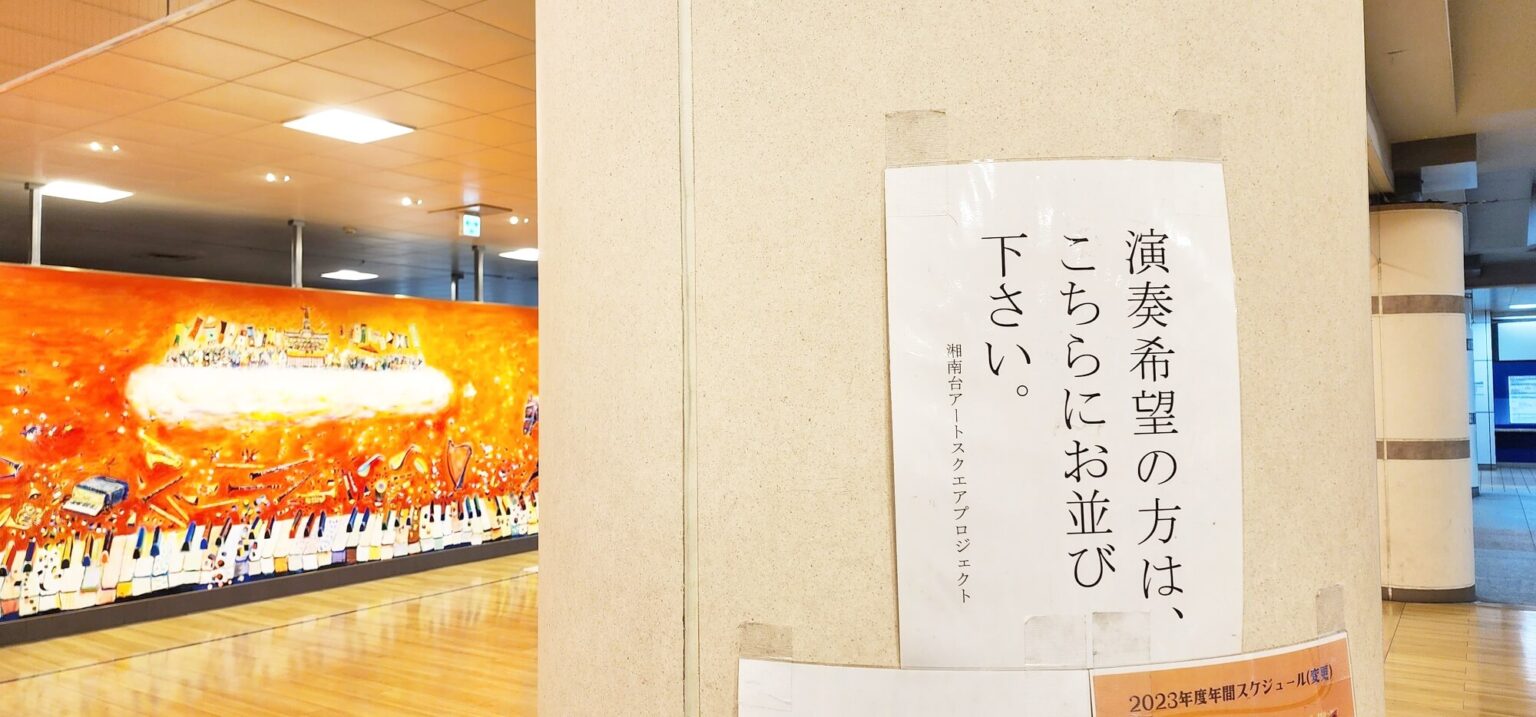 演奏希望の方は、
こちらにお並び
下さい。
湘南台アートスクエアプロジェクト
2023年度年間スケジュール(変更)